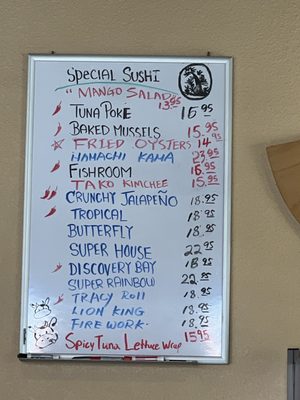 SPECIAL SUSHI
"MANGO SALAD 13.95
TUNA POKE 15.95
BAKED MUSSELS 15.95
FRIED OYSTERS 14.95
HAMACHI KAMA 23.95
FISHROOM 16.95
TAKO KIMCHEE 15.95
CRUNCHY JALAPEÑO 18.95
TROPICAL 18.95
BUTTERFLY 18.95
SUPER HOUSE 22.95
DISCOVERY BAY 18.95
SUPER RAINBOW 22.95
TRACY ROLL 18.95
LION KING 18.95
FIREWORK. 18.95
SPICY TUNA LETTUCE WRAP 15.95